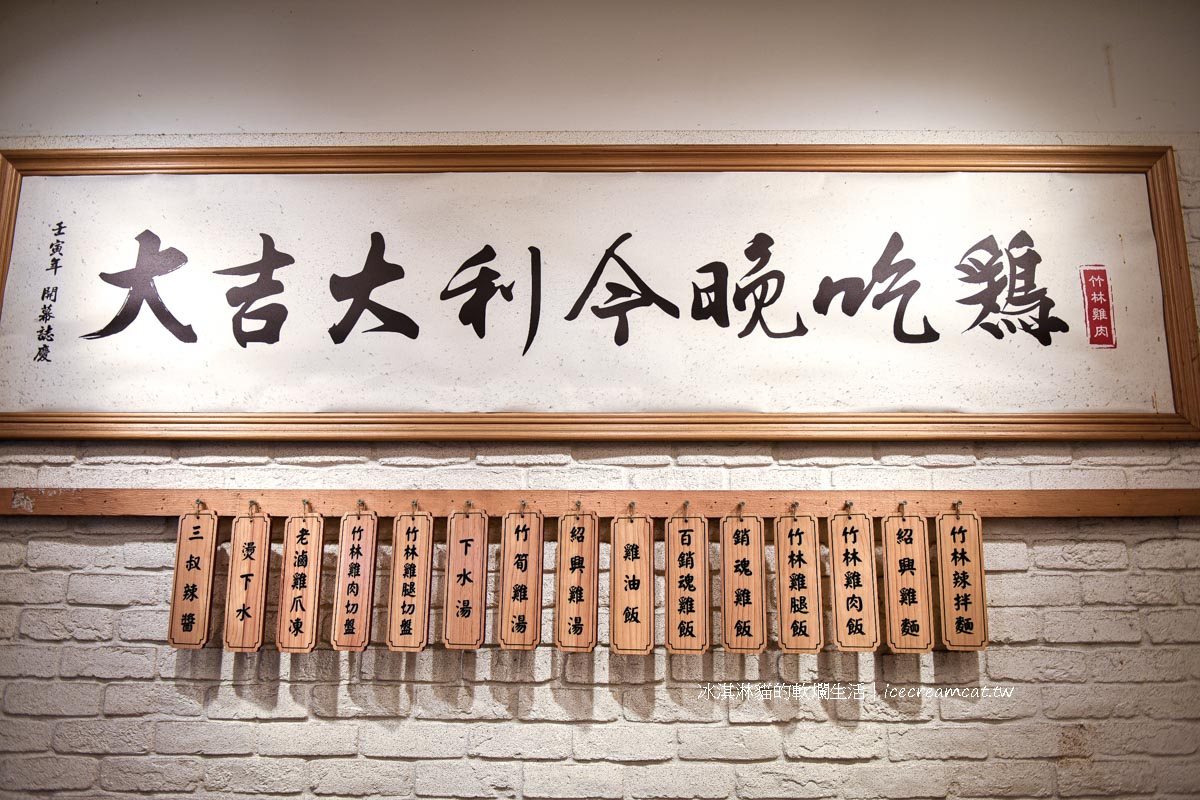 大吉大利今晚吃鷄
壬寅年 開幕誌慶
竹林雞肉
三叔辣醬
燙下水
老滷雞爪凍
竹林雞肉切盤
竹林雞腿切盤
下水湯
竹筍雞湯
紹興雞湯
雞油飯
百銷魂雞飯
銷魂雞飯
竹林雞腿飯
竹林雞肉飯
紹興雞麵
竹林辣拌麵
冰淇淋貓的軟爛生活 | icecreamcat.tw